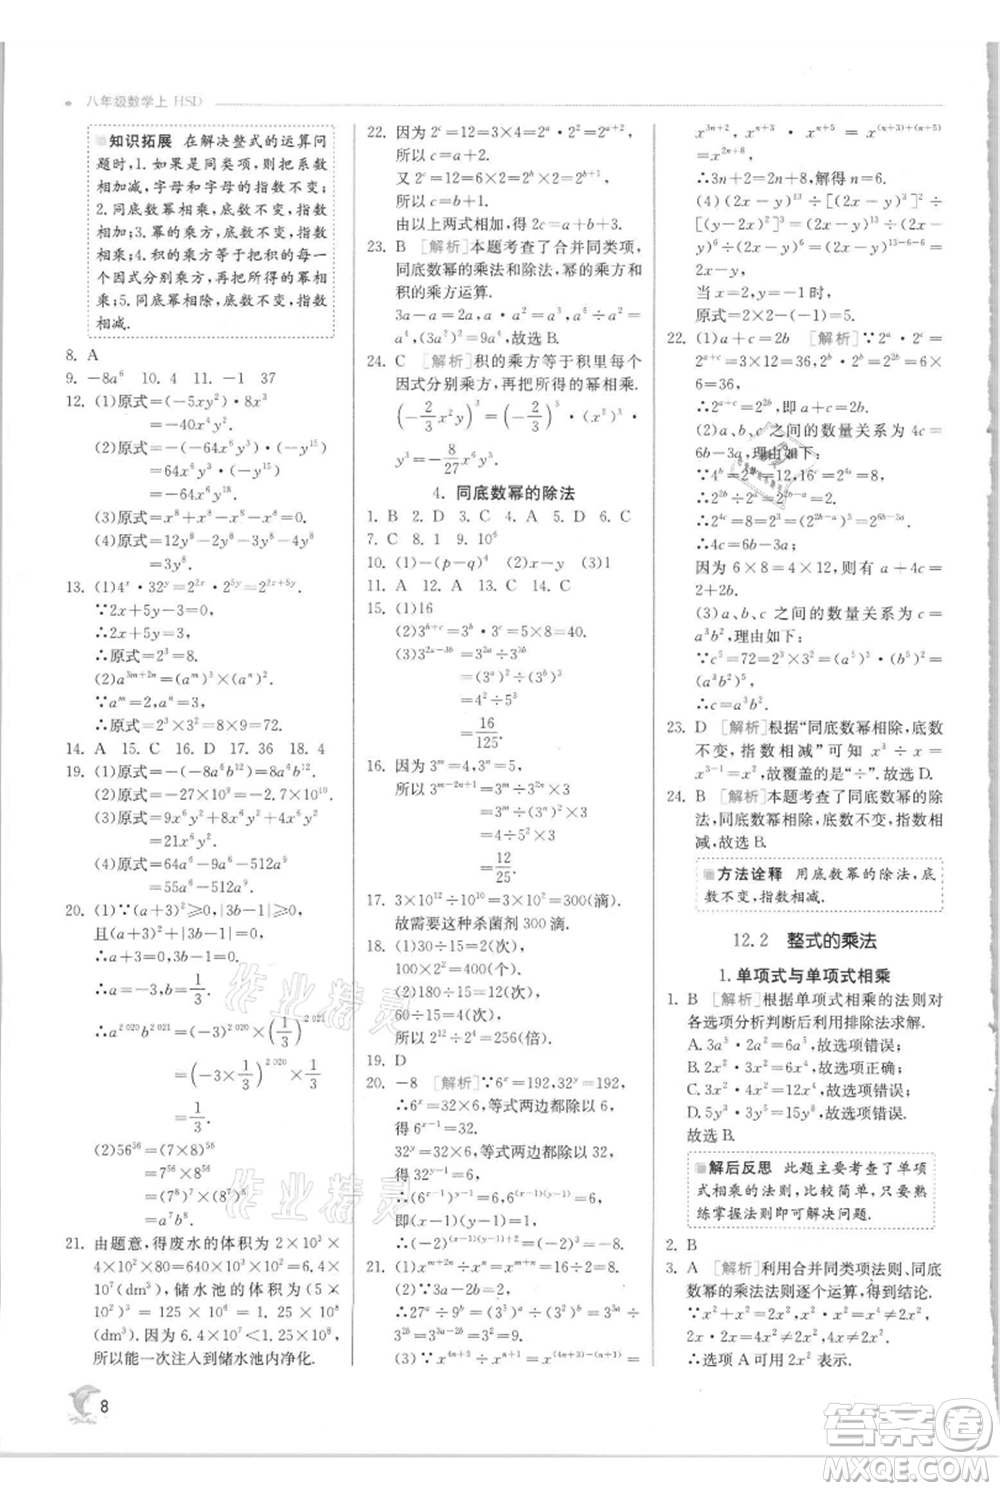 八年级数学上 HSD
知识拓展 在解决整式的运算问
题时,1. 如果是同类项,则把系数
相加减,字母和字母的指数不变;
2. 同底数幂相乘,底数不变,指数
相加;3. 幂的乘方,底数不变,指数
相乘;4. 积的乘方,把积的每一个
因式分别乘方,再把所得的幂相
乘;5. 同底数幂相除,底数不变,指数
相减.
8. A
9. -8a⁶ 10. 4 11. -1 37
12. (1)原式=(-5xy²)·8x³
=-40x⁴y².
(2)原式=(-64x⁶y³)·(-y¹⁵)
=64x⁶y³·(-y¹⁵)
=64x⁶y¹⁸.
(3)原式=x⁸+x⁸-x⁸-4x⁸
=-3x⁸.
(4)原式=12y⁸-8y⁸-y⁸
=3y⁸.
13. (1)4ˣ·32ʸ=2²ˣ·2⁵ʸ=2²ˣ⁺⁵ʸ.
∵2x+5y-3=0,
∴2x+5y=3,
∴原式=2³=8.
(2)a³ᵐ⁺²ⁿ=(aᵐ)³·(aⁿ)².
∵aᵐ=2,aⁿ=3,
∴原式=2³×3²=8×9=72.
14. A 15. C 16. D 17. 36 18. 4
19. (1)原式=-(-8a⁶b¹²)=8a⁶b¹².
(2)原式=-27×10⁹=-2.7×10¹⁰.
(3)原式=9x⁶y²+8x⁶y²+4x⁶y²
=21x⁶y².
(4)原式=64a⁶-9a⁶-512a⁹
=55a⁶-512a⁹.
20. (1)∵(a+3)²≥0,|3b-1|≥0,
且(a+3)²+|3b-1|=0,
∴a+3=0,3b-1=0,
∴a=-3,b=1/3.
∴a²⁰²⁰b²⁰²¹=(-3)²⁰²⁰×(1/3)²⁰²¹
=(-3×1/3)²⁰²⁰×1/3
=1/3.
(2)56⁵⁶=(7×8)⁵⁶
=7⁵⁶×8⁵⁶
=(7⁸)⁷×(8⁷)⁸
=a⁷b⁸.
21. 由题意,得废水的体积为 2×10³×
4×10²×8×10=64×10⁶=6.4×
10⁷(dm³),储水池的体积为(5×
10²)³=125×10⁶=1.25×10⁸
(dm³). 因为 6.4×10⁷<1.25×10⁸,
所以能一次注入到储水池内净化.
22. 因为2ᶜ=12=3×4=2ᵃ·2²=2ᵃ⁺²,
所以 c=a+2.
又 2ᶜ=12=6×2=2ᵇ×2=2ᵇ⁺¹,
所以 c=b+1.
由以上两式相加,得 2c=a+b+3.
23. B [解析]本题考查了合并同类项,
同底数幂的乘法和除法,幂的乘方和
积的乘方运算.
3a-a=2a,a·a²=a³,a⁶÷a²=
a⁴,(3a²)²=9a⁴,故选B.
24. C [解析]积的乘方等于积里每个
因式分别乘方,再把所得的幂相乘.
(-2/3x²y)³=(-2/3)³·(x²)³·
y³=-8/27x⁶y³. 故选C.
4. 同底数幂的除法
1. B 2. D 3. C 4. A 5. D 6. C
7. C 8. 1 9. 10⁶
10. (1)-(p-q)⁴ (2)x² (3)1
11. A 12. A 13. C 14. C
15. (1)16
(2)3ᵇ⁺ᶜ=3ᵇ·3ᶜ=5×8=40.
(3)3²ᵃ⁻³ᵇ=3²ᵃ÷3³ᵇ
=(3ᵃ)²÷(3ᵇ)³
=4²÷5³
=16/125.
16. 因为 3ᵐ=4,3ⁿ=5,
所以 3ᵐ⁻²ⁿ⁺¹=3ᵐ÷3²ⁿ×3
=3ᵐ÷(3ⁿ)²×3
=4÷5²×3
=12/25.
17. 3×10¹²÷10¹⁰=3×10²=300(滴).
故需要这种杀菌剂 300 滴.
18. (1)30÷15=2(次),
100×2²=400(个).
(2)180÷15=12(次),
60÷15=4(次),
所以 2¹²÷2⁴=2⁸=256(倍).
19. D
20. -8 [解析]∵6ˣ=192,32ʸ=192,
∴6ˣ=32×6,等式两边都除以 6,
得 6ˣ⁻¹=32.
32ʸ=32×6,等式两边都除以32,
得 32ʸ⁻¹=6.
∴(6ˣ⁻¹)ʸ⁻¹=32ʸ⁻¹=6,
即(6)⁽ˣ⁻¹⁾⁽ʸ⁻¹⁾=6,∴(x-1)(y-1)=1,
∴(-2)⁽ˣ⁻¹⁾⁽ʸ⁻¹⁾⁺²=(-2)³=-8.
21. (1)xᵐ⁺²ⁿ÷xⁿ=xᵐ⁺²ⁿ⁻ⁿ=xᵐ⁺ⁿ.
(2)∵3a-2b=2,
∴27ᵃ÷9ᵇ=(3³)ᵃ÷(3²)ᵇ=3³ᵃ÷
3²ᵇ=3³ᵃ⁻²ᵇ=3²=9.
(3)∵x⁴ⁿ⁺³÷xⁿ⁺¹=x⁽⁴ⁿ⁺³⁾⁻⁽ⁿ⁺¹⁾=
x³ⁿ⁺²,x³·xⁿ⁺⁵=x⁽ⁿ⁺³⁾⁺⁽ⁿ⁺⁵⁾
=x²ⁿ⁺⁸,
∴3n+2=2n+8,解得 n=6.
(4)(2x-y)¹³÷[(2x-y)³]²÷
[(y-2x)²]³=(2x-y)¹³÷(2x-
y)⁶÷(2x-y)⁶=(2x-y)¹³⁻⁶⁻⁶=
2x-y,
当 x=2,y=-1 时,
原式=2×2-(-1)=5.
22. (1)a+c=2b [解析]∵2ᵃ×2ᶜ
=3×12=36,2ᵇ×2ᵇ=6×6=36,
∴2ᵃ⁺ᶜ=2²ᵇ,即 a+c=2b.
(2)a、b、c 之间的数量关系为 4c=
6b-3a,理由如下:
∵4ᵇ÷2ᵃ=6²÷3=12,2ᶜ=12,
∴2²ᵇ÷2ᵃ=2ᶜ,
∴2²ᵇ⁻ᵃ=2ᶜ,∴2b-a=c,
∴4c=6b-3a.
因为 6×8=4×12,所以
(3)a、b、c 之间的数量关系为 c=
a³b²,理由如下:
∵c⁵=72=2³×3²=(a⁵)³·(b⁵)²
=(a³b²)⁵,
∴c=a³b².
23. D [解析]根据“同底数幂相除,底数
不变,指数相减”可知 x³÷x=
x³⁻¹=x²,故覆盖的是“÷”. 故选D.
24. B [解析]本题考查了同底数幂的除
法,同底数幂相除,底数不变,指数相
减,故选B.
方法诠释 用底数幂的除法,底
数不变,指数相减.
12.2 整式的乘法
1. 单项式与单项式相乘
1. B [解析]根据单项式相乘的法则对
各选项分析判断后利用排除法求解.
A. 3a³·2a²=6a⁵,故选项错误;
B. 2x²·3x²=6x⁴,故选项正确;
C. 3x²·4x²=12x⁴,故选项错误;
D. 5y³·3y⁵=15y⁸,故选项错误.
故选 B.
解后反思 此题主要考查了单项
式相乘的法则,比较简单,只要熟
练掌握法则即可解决问题.
2. B
3. A [解析]利用合并同类项法则、同底
数幂的乘法法则逐个运算,得到结论.
∵x²+x²=2x²,x²·x²=x⁴≠2x²,
2x·x³=2x⁴≠2x²,
∴选项 A 可用 2x² 表示.
8
作业精灵
作业精灵
答案卷
MXQE.COM